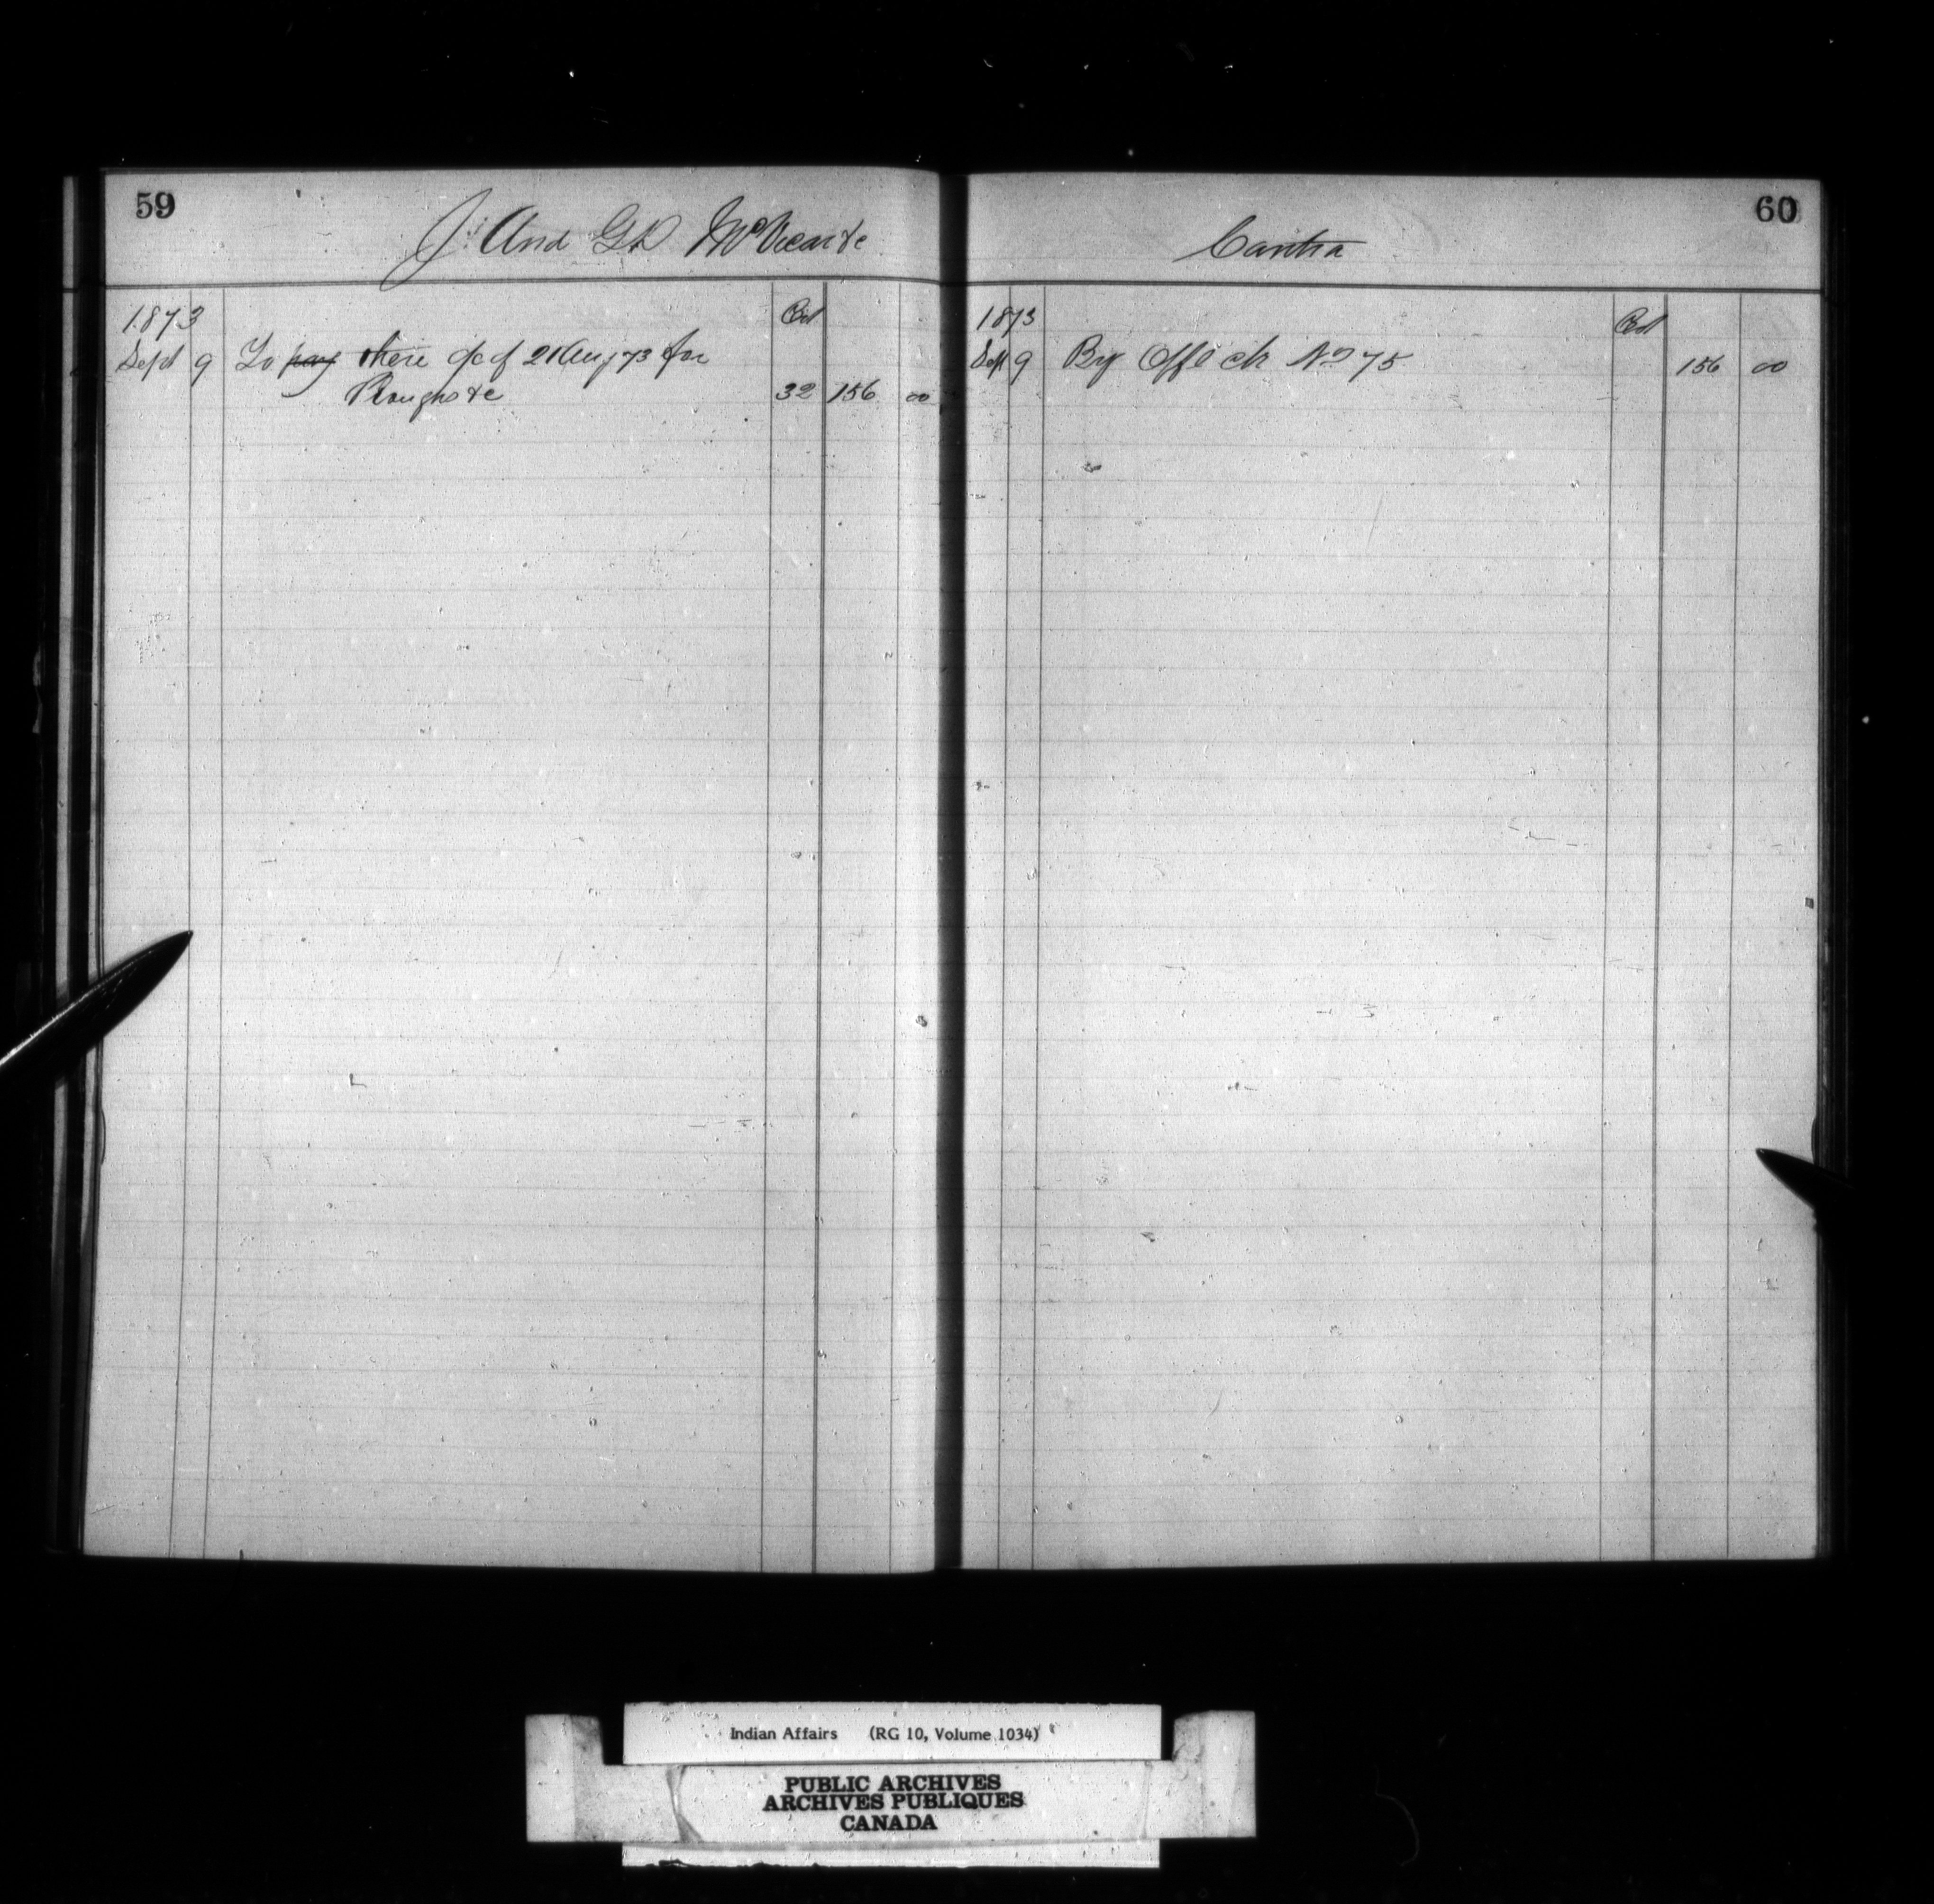 59
J. And G. D McVicar &c
1873 Col
Sept 9 To pay their a/c of 21 Aug 73 for
Ploughs &c 32 156 00
60
Contra
1873 Col
Sept 9 By Offl ck No 75 156 00
Indian Affairs (RG 10, Volume 1034)
PUBLIC ARCHIVES
ARCHIVES PUBLIQUES
CANADA